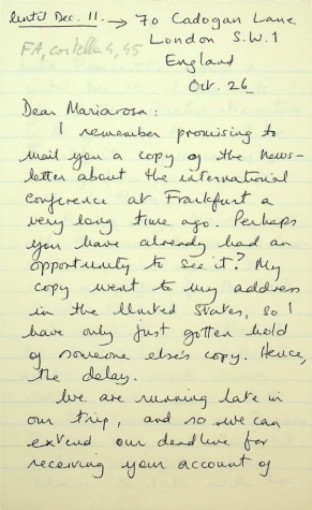 Until Dec. 11. → 70 Cadogan Lane
London S.W.1
FA, cartella 4, 45
England
Oct. 26
Dear Mariarosa:
I remember promising to
mail you a copy of the news-
letter about the international
conference at Frankfurt a
very long time ago. Perhaps
you have already had an
opportunity to see it? My
copy went to my address
in the United States, so I
have only just gotten hold
of someone else's copy. Hence,
the delay.
We are running late in
our trip, and so we can
extend our deadline for
receiving your account of